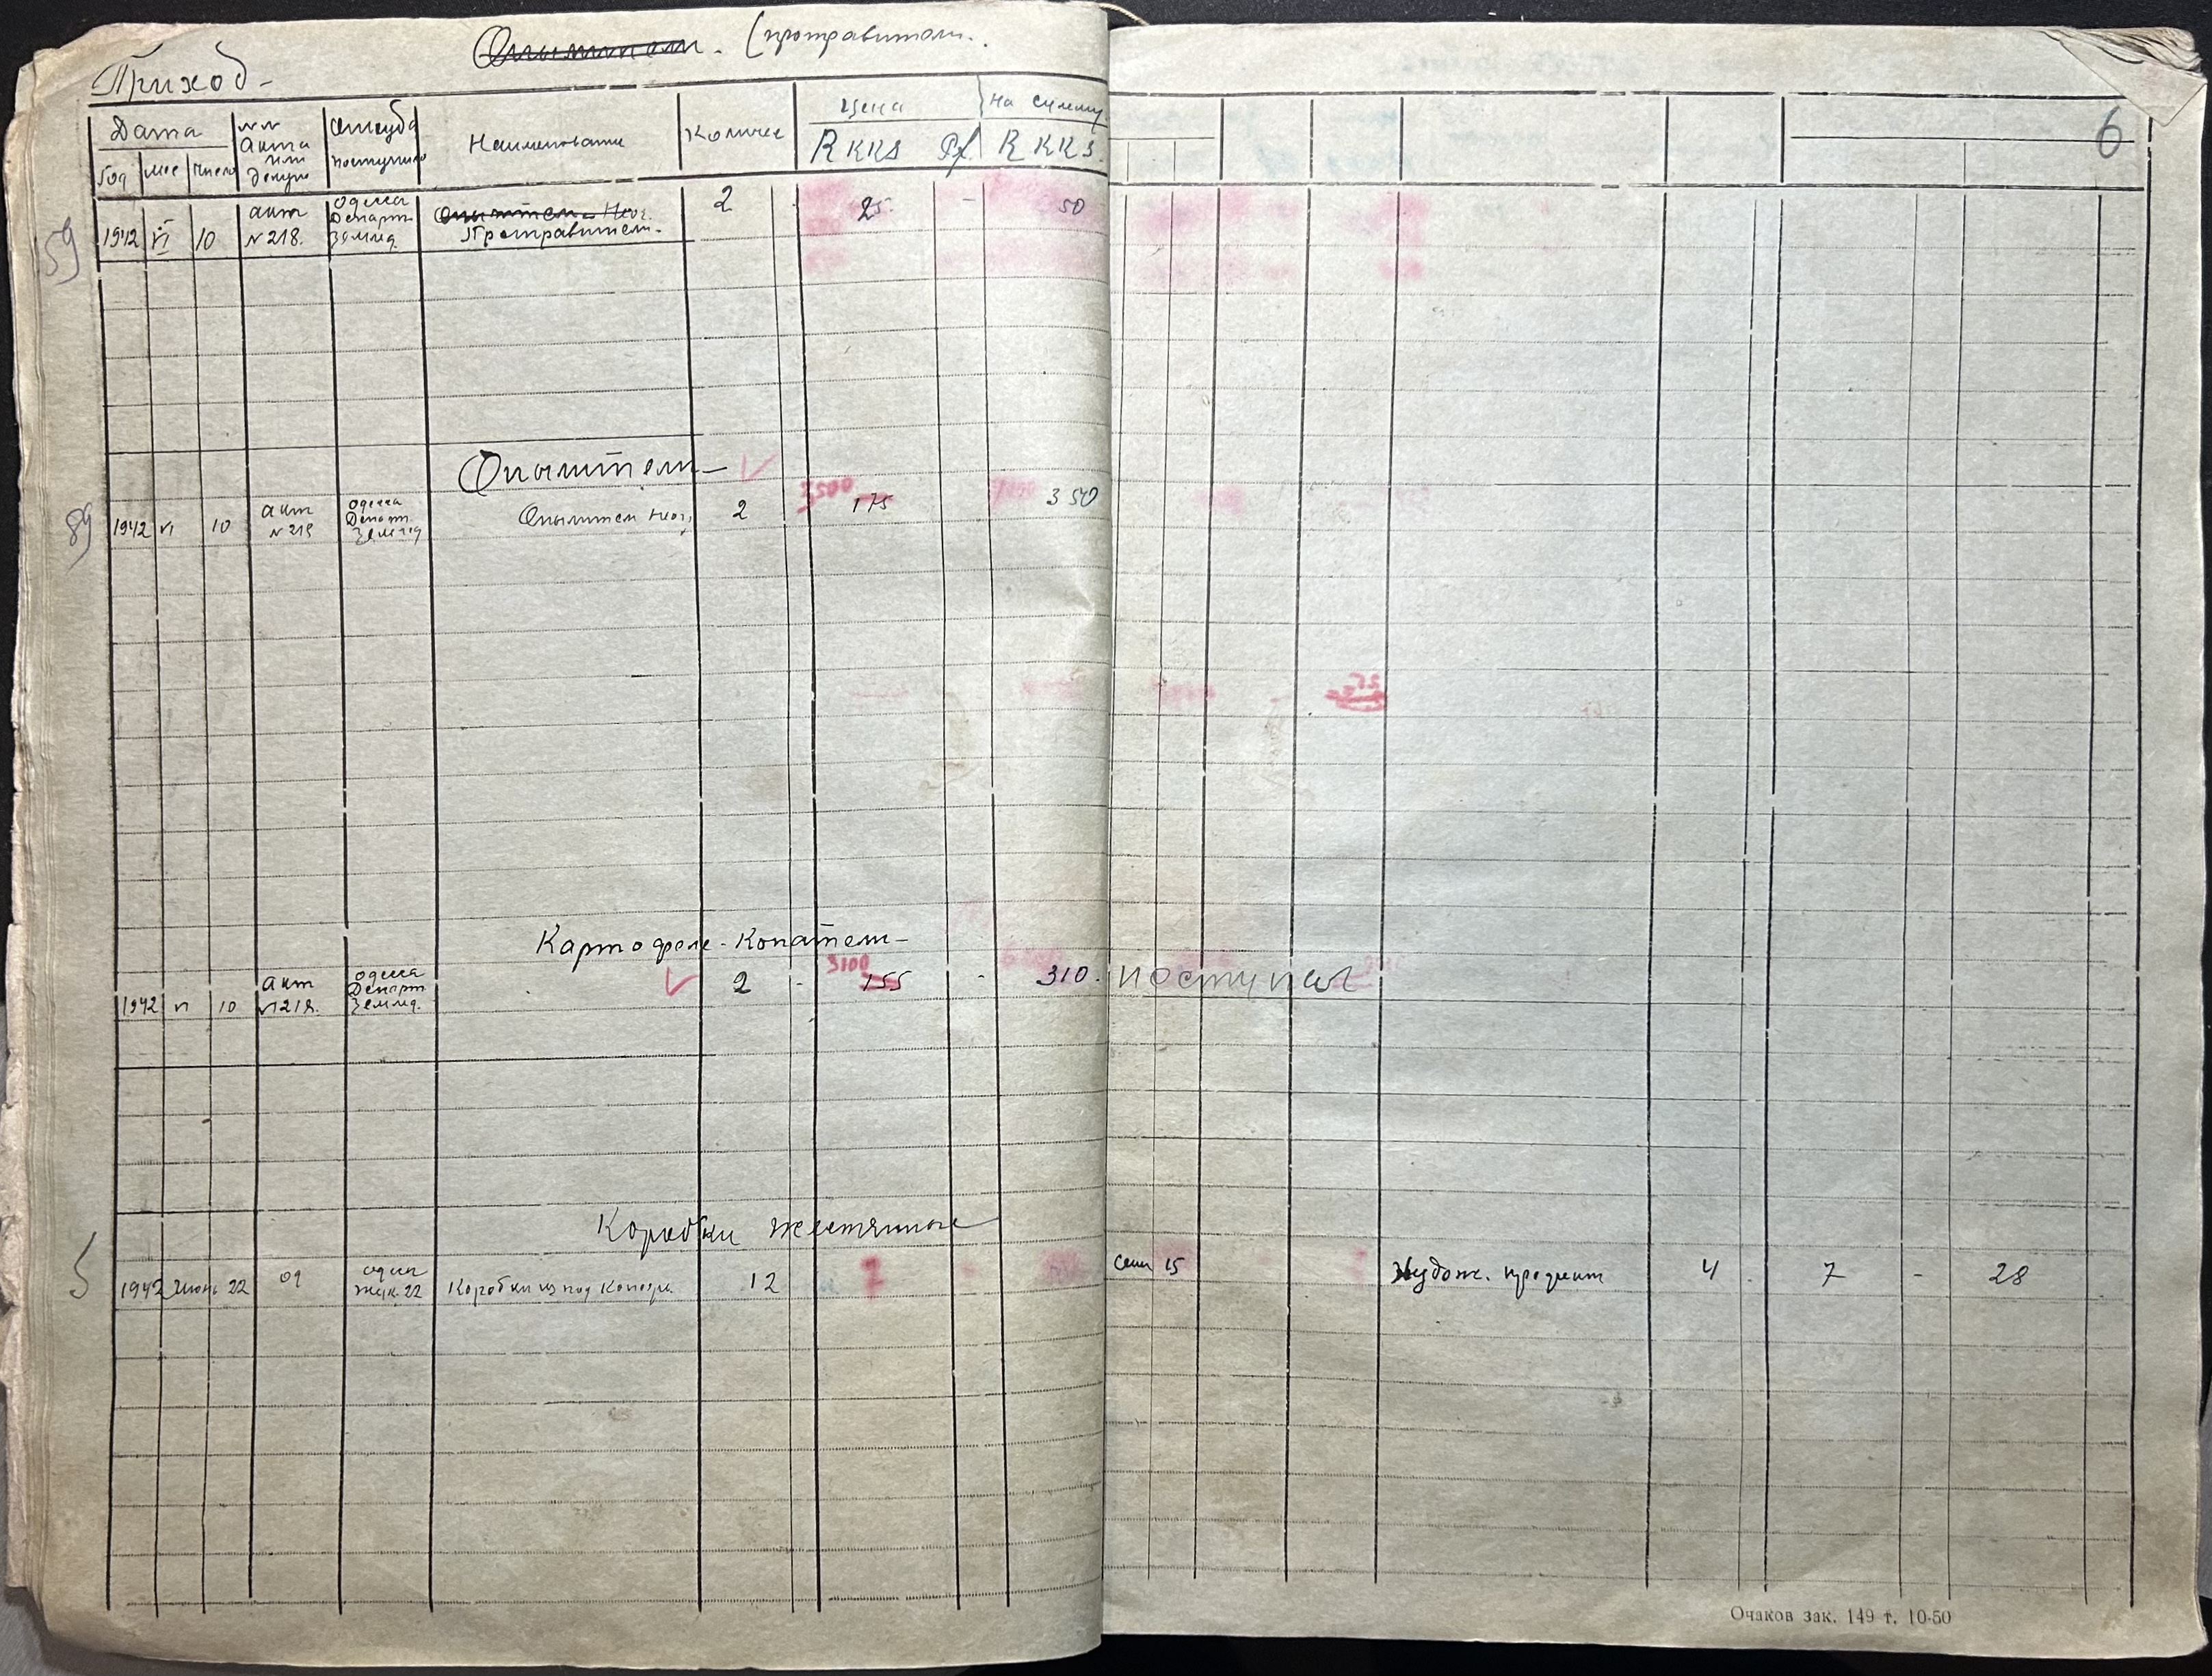 Опылители. (протравители.
Приход-
6
Дата
№№ Акта или докум
Откуда поступило
Наименование
Количес
Цена
На сумму
Год мес Число
RKKS Pf. RKKS.
159
1942 VI 10 акт №218. Одесса Департ. Землед. Опылители Неог. Протравители. 2 - 25 - 50
Опылители
89
1942 VI 10 акт №218 Одесса Департ. Землед Опылители Неог. 2 3500 175 350
Картофеле-Копатели-
1942 VI 10 акт №218. Одесса Департ Землед. 2 - 3100 155 - 310. поступил
Коробки жестянные
5
1942 Июнь 22 09 один жук. 22 Коробки из под Консерв. 12 7 Сент 15 Худож. продукт 4 7 - 28
Очаков зак. 149 т. 10-50